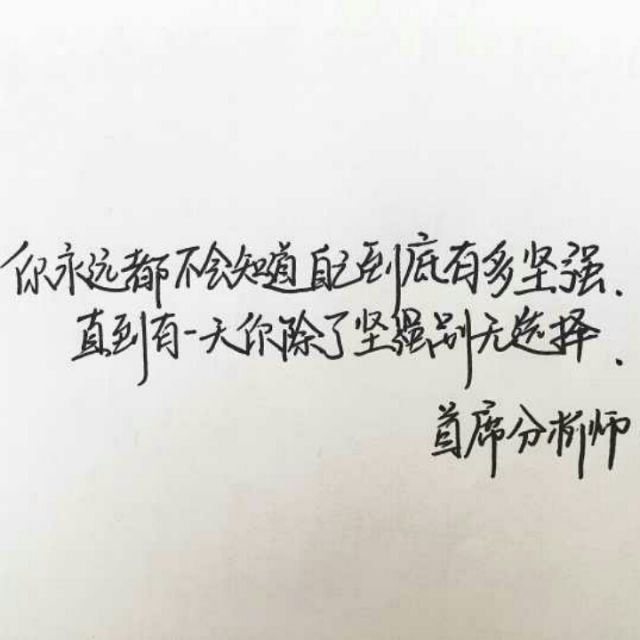 你永远都不会知道自己到底有多坚强.
直到有一天你除了坚强别无选择.
首席分析师